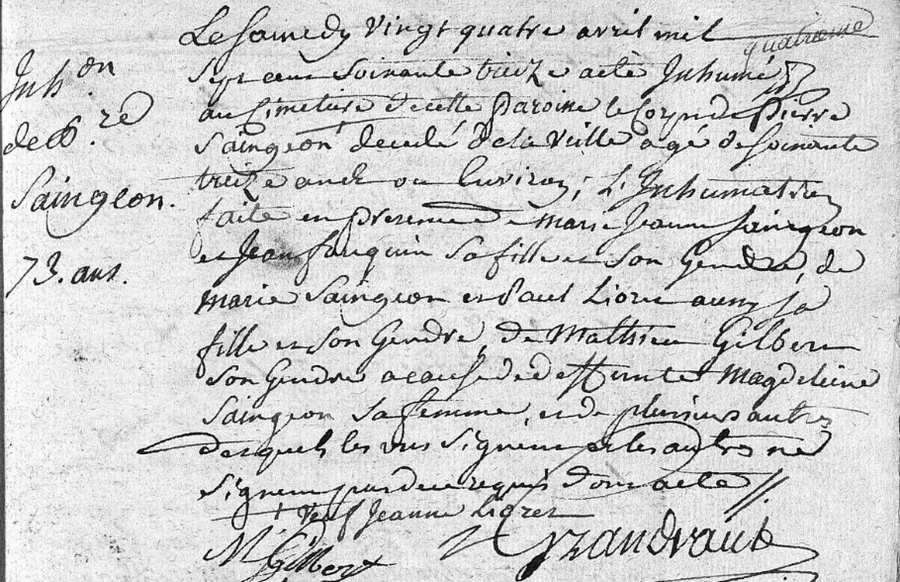 Le Samedy Vingt quatre avril mil
quatrieme
Sept cens Soixante treize a été Inhumé
au Cimetiere de cette Paroisse le Corps de Pierre
Saingeon decedé de la Ville agé de Soixante
treize ans ou Environ; L'Inhumation
faite en presence de Marie Jeanne Saingeon
et Jean fauquin Sa fille et Son Gendre, de
Marie Saingeon et Paul Liore aussy sa
fille et son Gendre, de Mathieu Gilbert
Son Gendre a cause de deffunte Magdeleine
Saingeon Sa femme, et de plusieurs autres
desquels les uns Signent et les autres ne
Signent pas de ce requis dont acte //.
Jeanne
M Gilbert
Inh.on
de P.re
Saingeon.
73. ans.